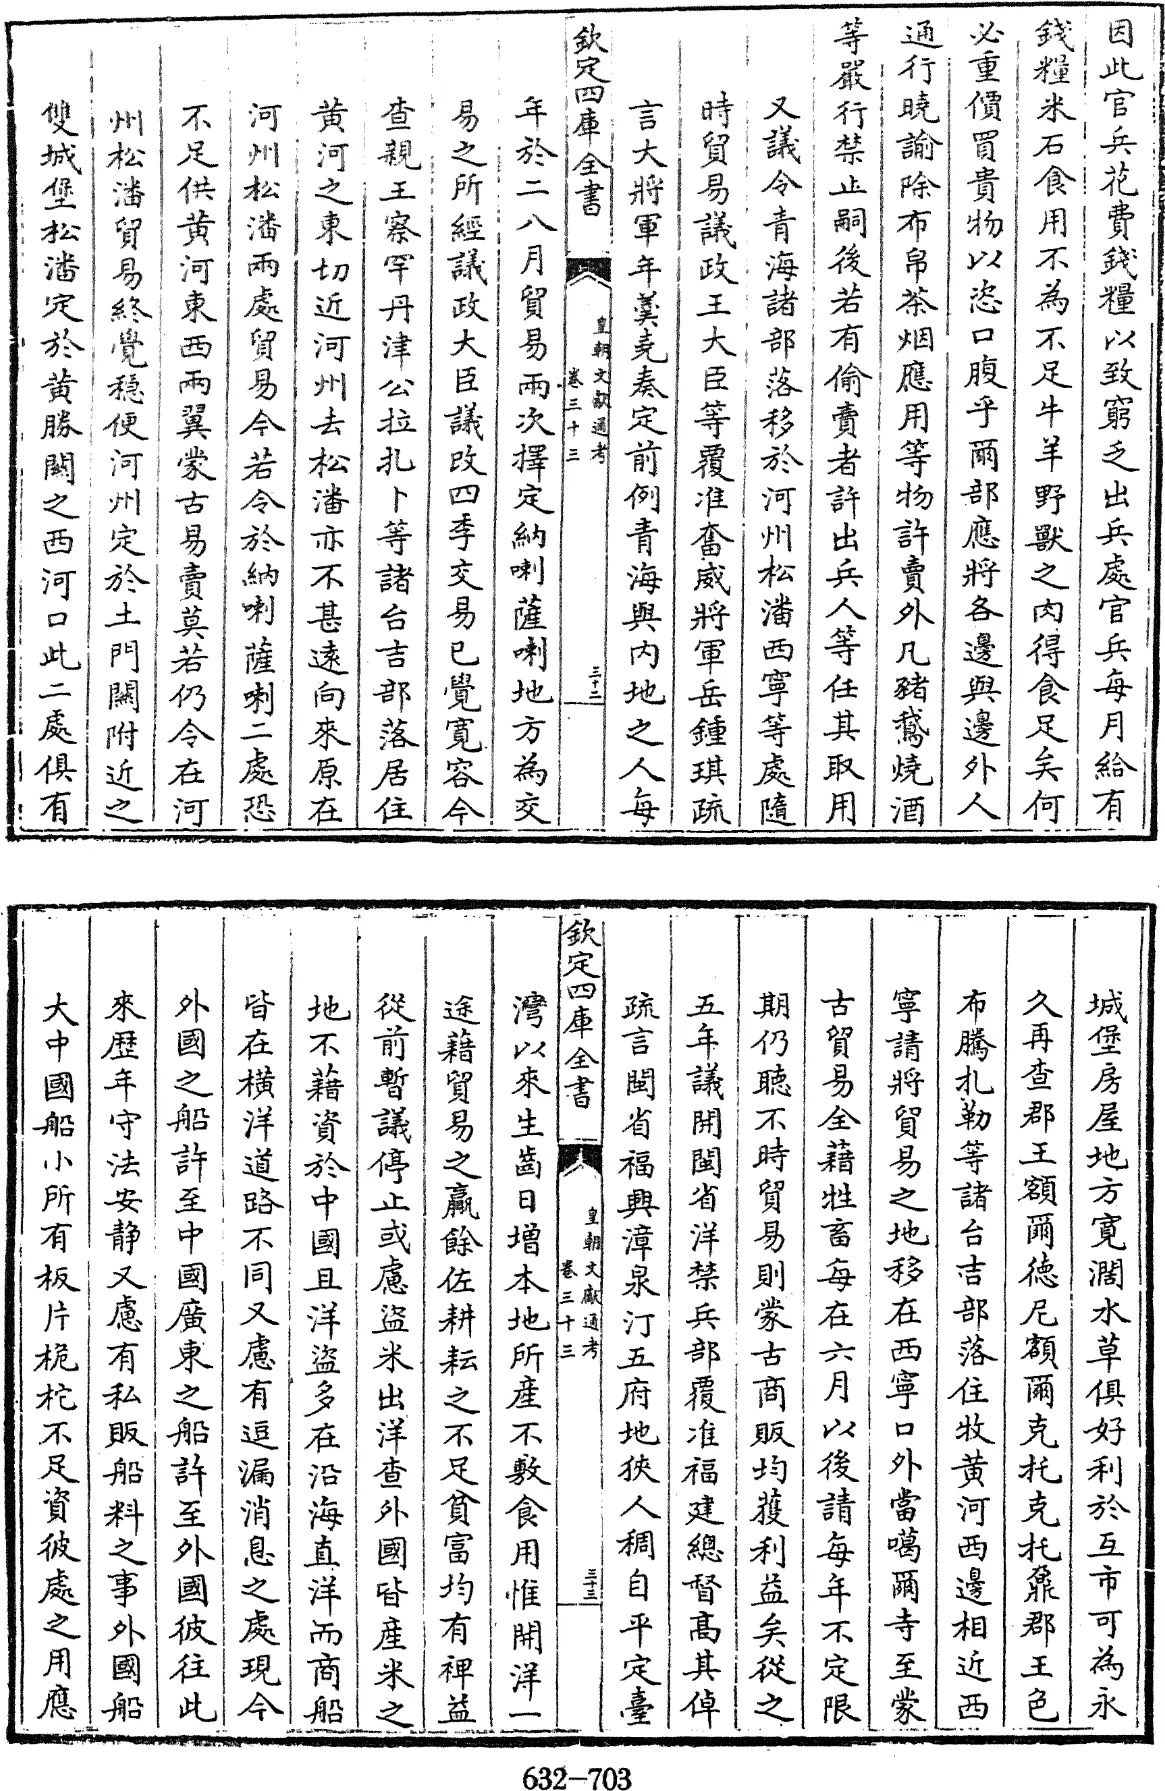 因此官兵花費錢糧以致窮乏出兵處官兵每月給有
錢糧米石食用不為不足牛羊野獸之肉得食足矣何
必重價買貴物以恣口腹乎爾部應將各邊與邊外人
通行曉諭除布帛茶烟應用等物許賣外凡豬鵝燒酒
等嚴行禁止嗣後若有偷賣者許出兵人等任其取用
又議令青海諸部落移於河州松潘西寧等處隨
時貿易議政王大臣等覆准奮威將軍岳鍾琪疏
言大將軍年羹堯奏定前例青海與內地之人每
欽定四庫全書
皇朝文獻通考
卷三十三
三十二
年於二八月貿易兩次擇定納喇薩喇地方為交
易之所經議政大臣議改四季交易已覺寬容今
查親王察罕丹津公拉扎卜等諸台吉部落居住
黃河之東切近河州去松潘亦不甚遠向來原在
河州松潘兩處貿易今若令於納喇薩喇二處恐
不足供黃河東西兩翼蒙古易賣莫若仍令在河
州松潘貿易終覺穩便河州定於土門關附近之
雙城堡松潘定於黃勝關之西河口此二處俱有
城堡房屋地方寬濶水草俱好利於互市可為永
久再查郡王額爾德尼額爾克托克托鼐郡王色
布騰扎勒等諸台吉部落住牧黃河西邊相近西
寧請將貿易之地移在西寧口外當噶爾寺至蒙
古貿易全藉牲畜每在六月以後請每年不定限
期仍聽不時貿易則蒙古商販均獲利益矣從之
五年議開閩省洋禁兵部覆准福建總督高其倬
疏言閩省福興漳泉汀五府地狹人稠自平定臺
欽定四庫全書
皇朝文獻通考
卷三十三
三十三
灣以來生齒日增本地所產不敷食用惟開洋一
途藉貿易之贏餘佐耕耘之不足貧富均有裨益
從前暫議停止或慮盜米出洋查外國皆產米之
地不藉資於中國且洋盜多在沿海直洋而商船
皆在橫洋道路不同又慮有逗漏消息之處現今
外國之船許至中國廣東之船許至外國彼往此
來歷年守法安靜又慮有私販船料之事外國船
大中國船小所有板片桅柁不足資彼處之用應
632-703